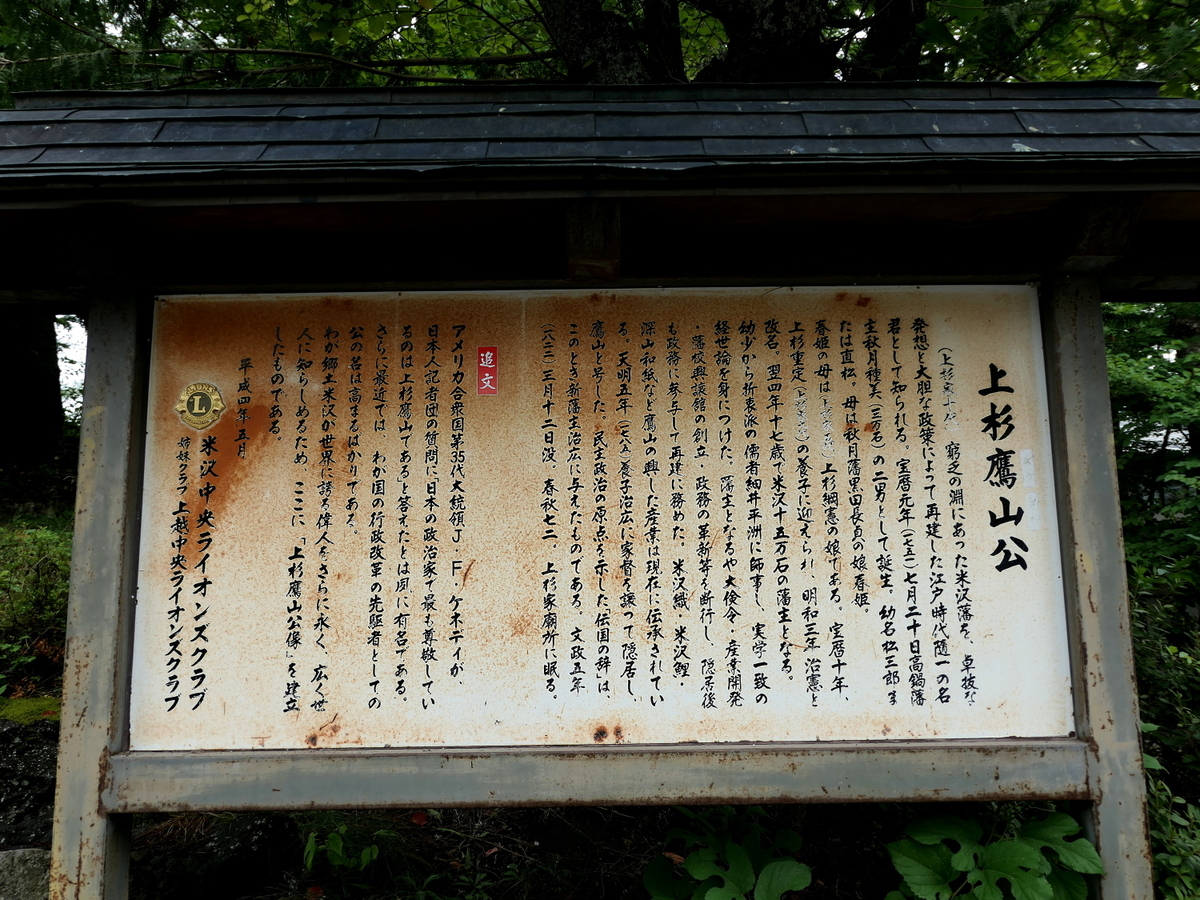 上杉鷹山公
窮乏の淵にあった米沢藩を、卓抜な
発想と大胆な政策によって再建した江戸時代随一の名
君として知られる。宝暦元年(一七五一)七月二十日高鍋藩
主秋月種美(三万石)の二男として誕生。幼名松三郎ま
たは直松。母は秋月藩黒田長貞の娘春姫。
春姫の母は 上杉綱憲の娘である。宝暦十年、
上杉重定 の養子に迎えられ、明和三年治憲と
改名。翌四年十七歳で米沢十五万石の藩主となる。
幼少から折衷派の儒者細井平洲に師事し、実学一致の
経世論を身につけた。藩主となるや大倹令・産業開発
・藩校興譲館の創立・政務の革新等を断行し、隠居後
も政務に参与して再建に務めた。米沢織・米沢鯉・
深山和紙など鷹山の興した産業は現在に伝承されてい
る。天明五年(一七八五)養子治広に家督を譲って隠居し、
鷹山と号した。民主政治の原点を示した「伝国の辞」は、
このとき新藩主治広に与えたものである。文政五年
(一八二二)三月十二日没、春秋七二。上杉家廟所に眠る。
追文
アメリカ合衆国第35代大統領J・F・ケネディが、
日本人記者団の質問に「日本の政治家で最も尊敬してい
るのは上杉鷹山である」と答えたとは夙に有名である。
さらに最近では、わが国の行政改革の先駆者としての
公の名は高まるばかりである。
わが郷土米沢が世界に誇る偉人をさらに永く、広く世
人に知らしめるため、ここに「上杉鷹山公像」を建立
したものである。
平成四年五月
LIONS
L
米沢中央ライオンズクラブ
姉妹クラブ 上越中央ライオンズクラブ